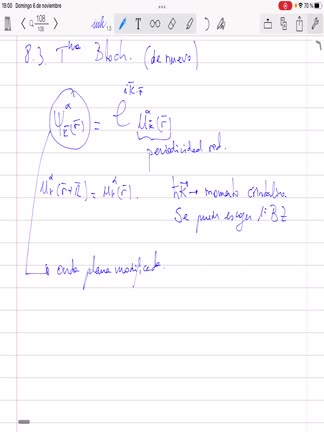 19:00 Domingo 6 de noviembre
70 %
108
108
1.5
8.3 Tma Bloch. (de nuevo)
ψ^α_k̄(r̄) = e^{ik̄·r̄} u^α_k̄(r̄)
periodicidad red.
u_k^α(r̄+R̄) = u_k^α(r̄).
ħk̄ → momento cristalino.
Se puede escoger 1ª BZ
→ onda plana modificada.